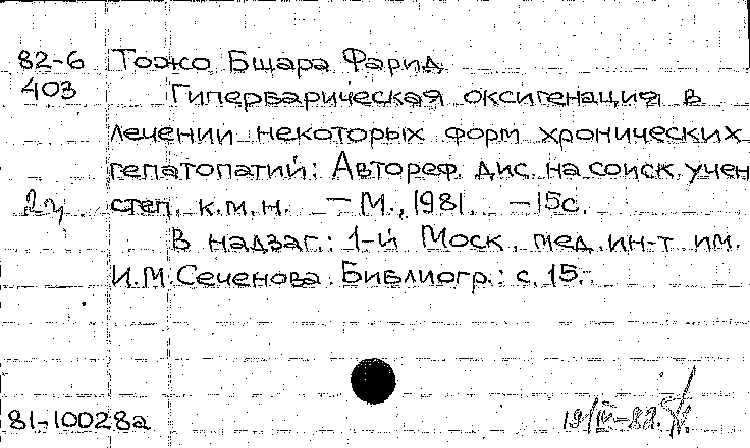 82-6 Тожо Бщара Фарид.
403 Гипербарическая оксигенация в
лечении некоторых форм хронических
гепатопатий: Автореф. дис. на соиск. учен
2ч. степ. к.м.н. – М., 1981. – 15с.
В надзаг.: 1-й Моск. мед. ин-т им.
И.М.Сеченова. Библиогр.: с. 15.
81-10028а